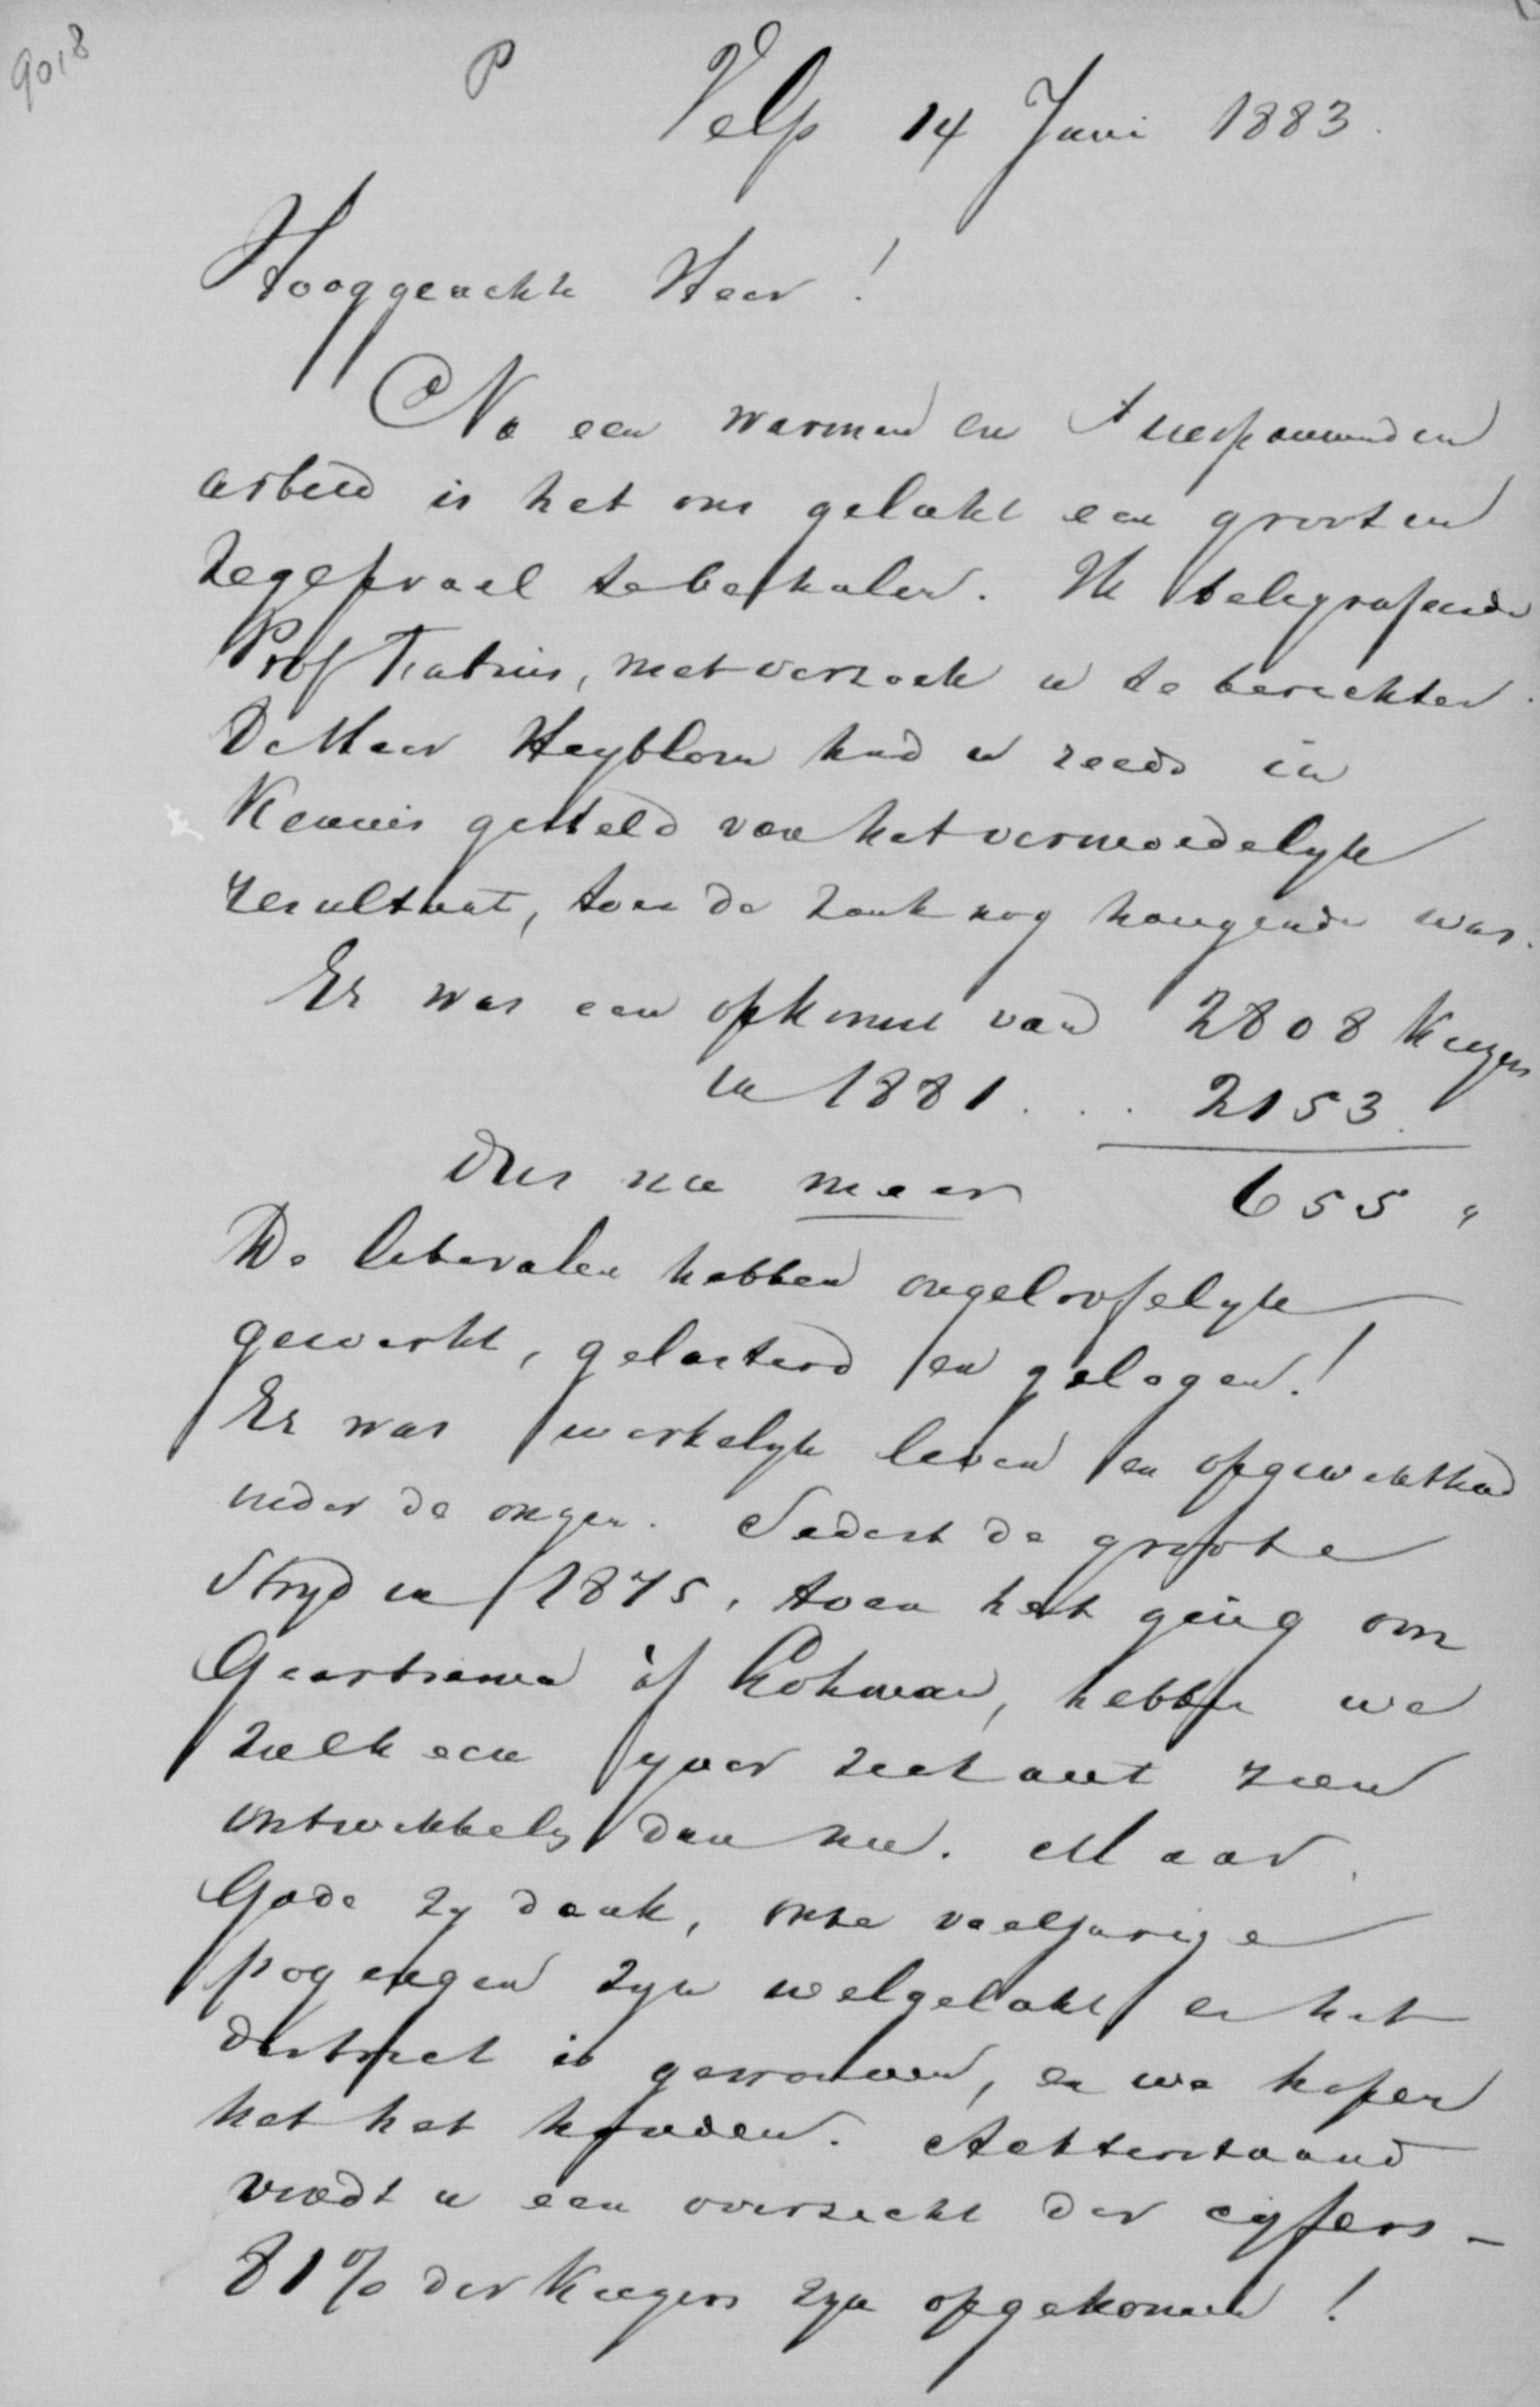 9018
P
Velp 14 Juni 1883.
Hooggeachte Heer!
Na een warmen en inespannenden
arbeid is het ons gelukt een grooten
zegepraal te behalen. Ik telegrafeerde
Prof Fabius, met verzoek u te berichten.
De Heer Heyblom had u reeds in
Kennis gesteld van het vermoedelyk
resultaat, toen de zaak nog hangende was.
Er was een opkomst van 2808 Kiezers
in 1881 . . . 2153.
dus nu meer 655 "
De liberalen hebben ongeloofelyk
gewerkt, gelasterd en gelogen!
Er was werkelyk leven en opgewektheid
onder de onzen. Sedert de groote
Stryd in 1875, toen het ging om
Geertsema of Lohman, hebben we
zulk een yver zich niet zien
ontwikkelen dan nu. Maar
Gode zy dank, onze veeljarige
pogingen zyn welgelukt en het
district is gewonnen, en we hopen
het het houden. Achterstaand
vindt u een overzicht der cyfers –
81% der Kiezers zyn opgekomen!